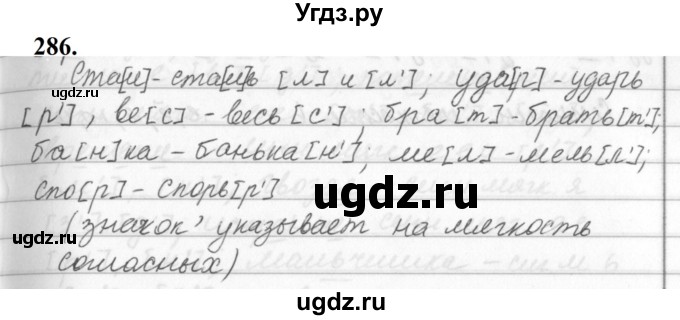 Угдз.ру
286.
Ста[л]-ста[л]ь [л] и [л']; уда[р]-ударь
[р'], ве[с] - весь [с']; бра[т]-брать[т'];
ба[н]ка - банька[н'], ме[л]-мель[л'];
спо[р]- спорь[р']
(значок ' указывает на мягкость
согласных)
ugdz.ru
ugdz.ru
ugdz.ru
ugdz.ru
ugdz.ru
ugdz.ru
ugdz.ru